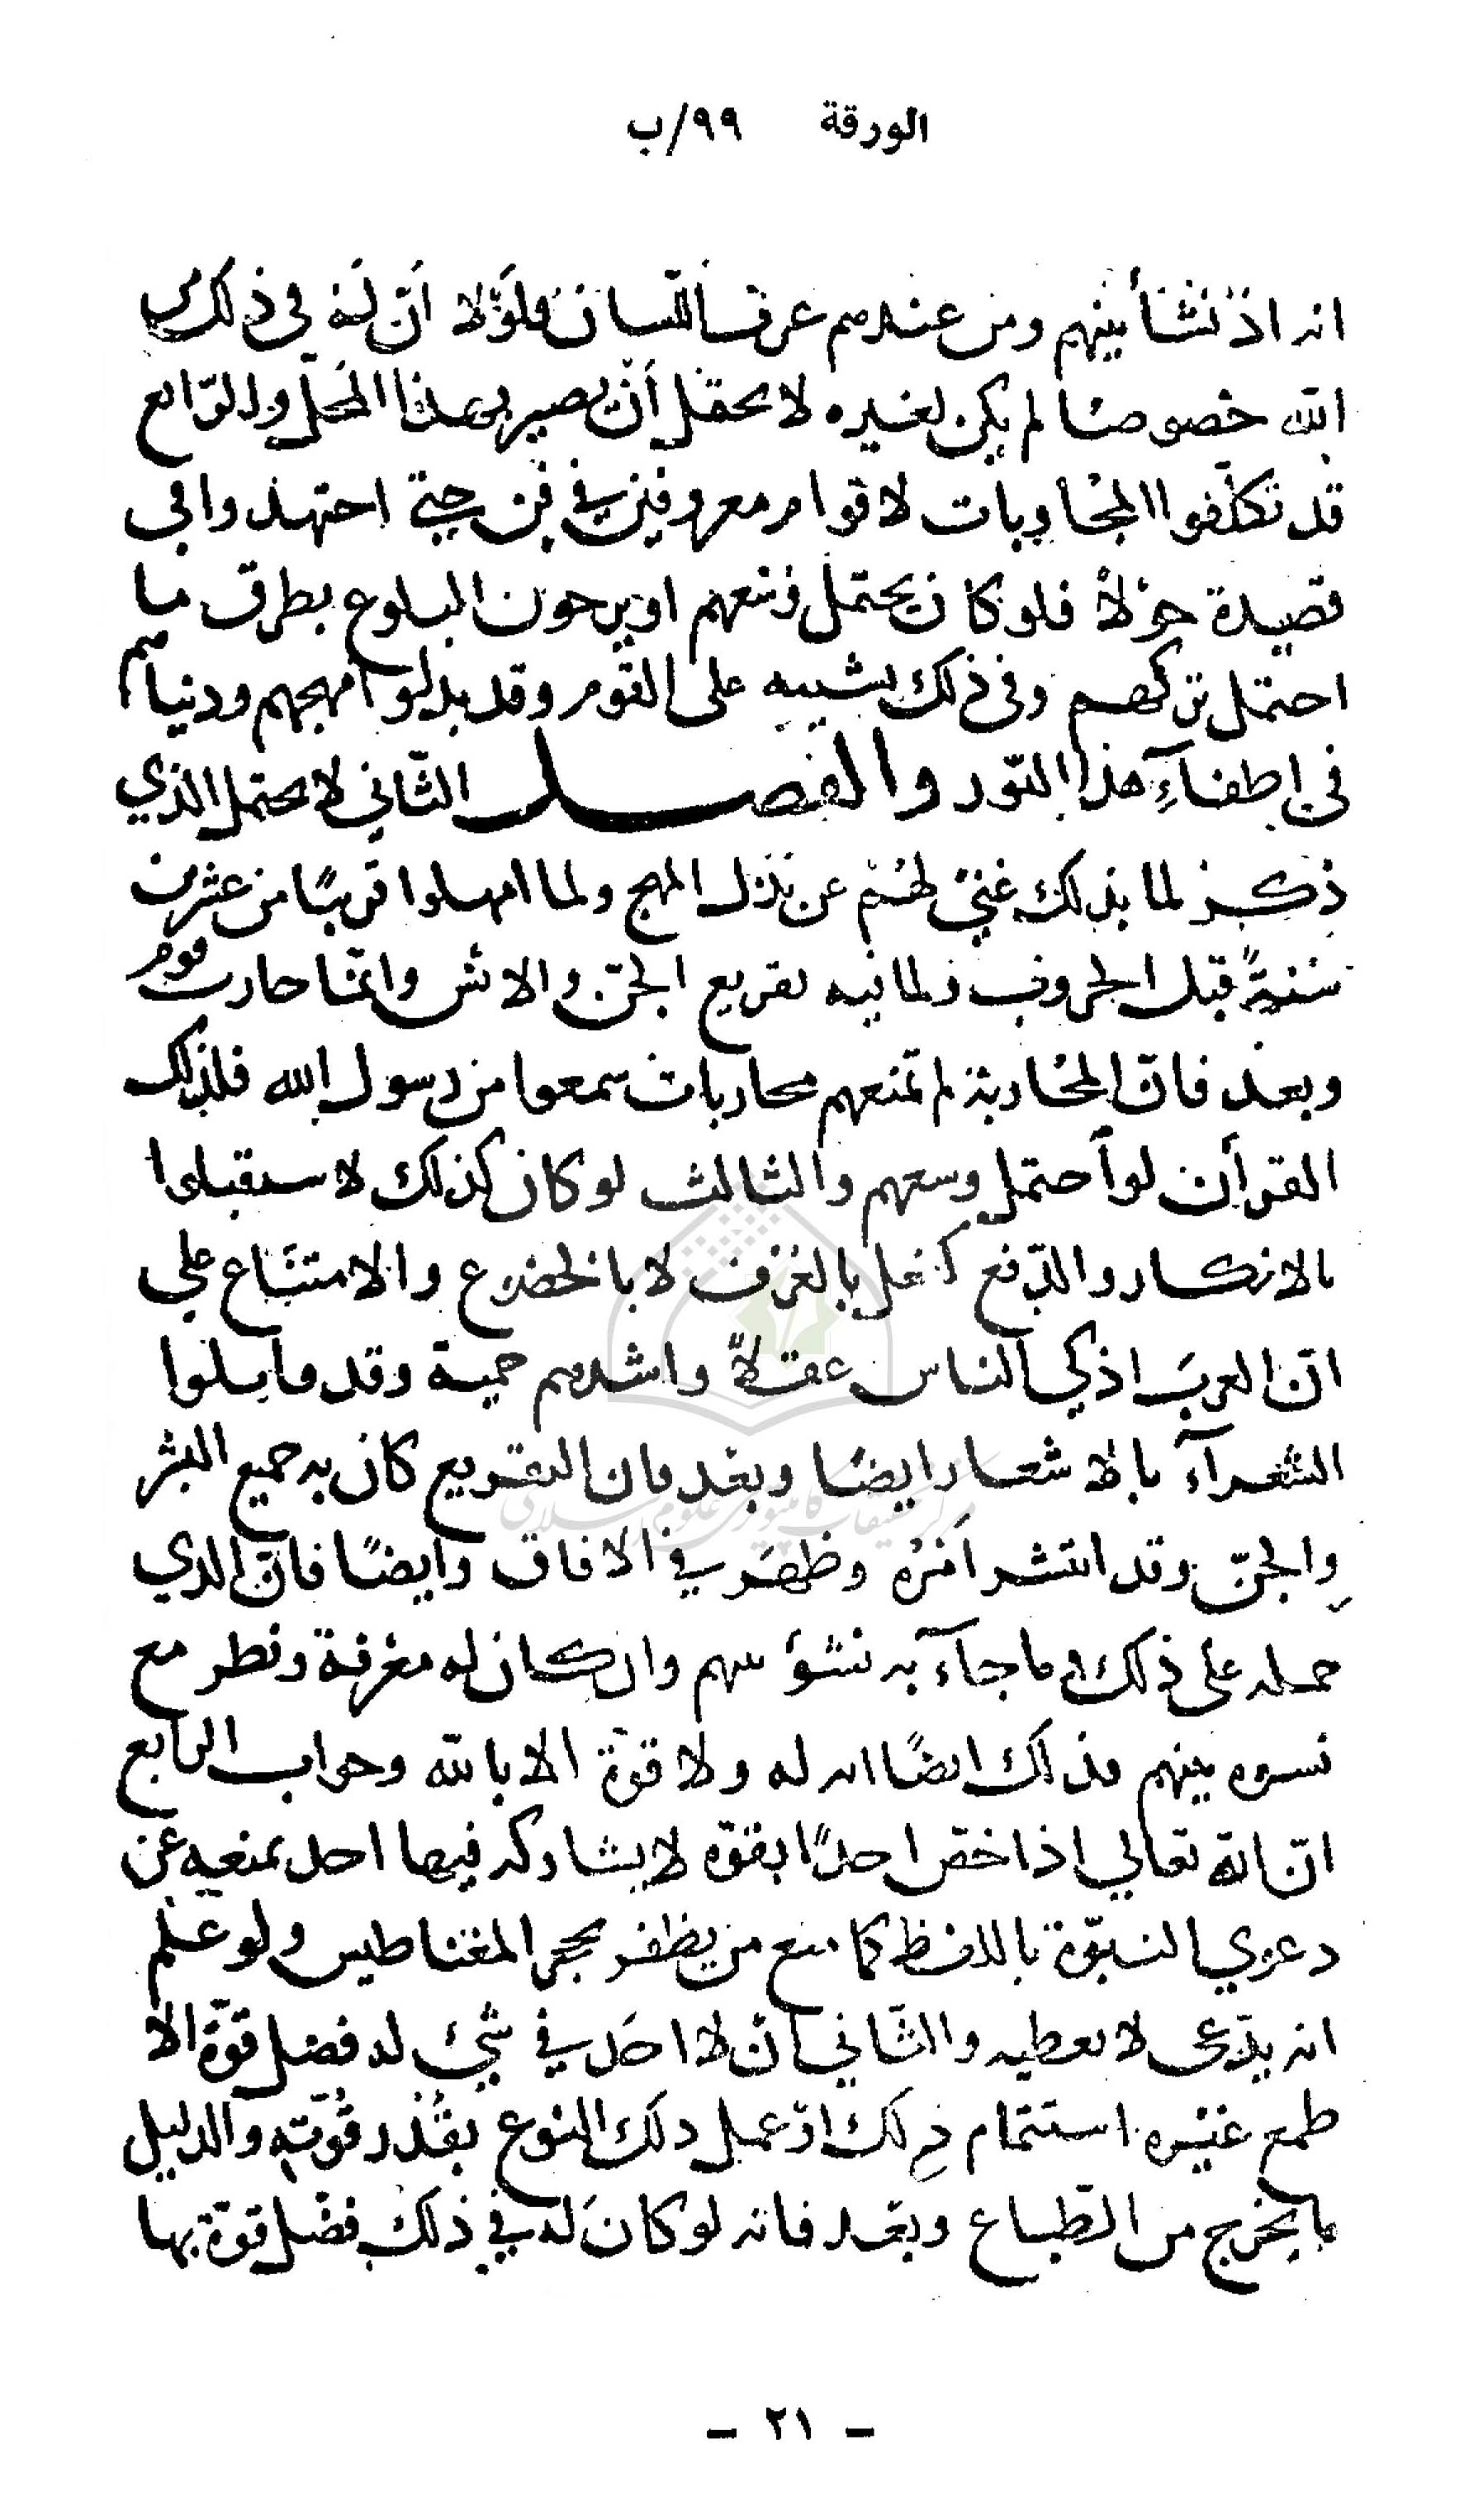 الورقة ٩٩/ب
انه اذ نشأ بينهم ومن عندهم عرف اللسان فلولا ان له في ذلك من
الله خصوصا لم يكن لغيره لا يحتمل أن يصير بهذا المحل والرّابع
قد تكلّفوا المجاوبات لاقوام معروفين في فن حتى اجتهدوا في
قصيدة حولا فلو كان يحتمل وسعهم او يرجون البلوغ بطرق ما
احتمل تركهم وفي ذلك تشبيه على القوم وقد بذلوا مهجهم ودنياهم
في اطفآء هذا النّور والفصل الثّاني لا يحتمل الذي
ذكر لما بذلك غنىً لهم عن بذل المهج ولما امهلوا قريبًا من عشرين
سنةً قبل الحروف ولما فيه تقريع الجنّ والانس وانّما حارب قوم
وبعد فان المحاربة لم تمنعهم محاربات سمعوا من رسول الله فلذلك
القرأن لو أحتمل وسعهم والثالث لو كان كذلك لاستقبلوا
بالانكار والدّفع كفعل بالعرف لا بالخضوع والامتناع على
انّ العربَ اذكى الناس عقلاً واشدهم حمية وقد قابلوا
الشعرآء بالاشعار ايضًا وبعد فان التقريع كان به جميع البشر
والجنّ وقد انتشر امره وظهر في الافاق وايضًا فانّ الذي
حمله على ذلك وما جآء به نشؤ منهم وان كان له معرفة ونظر مع
نسوه بينهم فذلك ايضًا انه له ولا قوّة الا بالله وجواب الرابع
انّ الله تعالى اذا خصّ احدًا بقوّة لا يشاركه فيها احد يمنعه عن
دعوى النبوّة باللفظ كما منع من يظفر بحجر المغناطيس ولو علم
انه يدّعى لا يعطيه والثّاني ان لا احد في شيء له فضل قوّة الا
طمع غيره استتمام ذلك او عمل ذلك النوع بقدر قوّته والدليل
ما يخرج من الطّباع وبعد فانه لو كان له في ذلك فضل قوّة بها
- ٢١ -